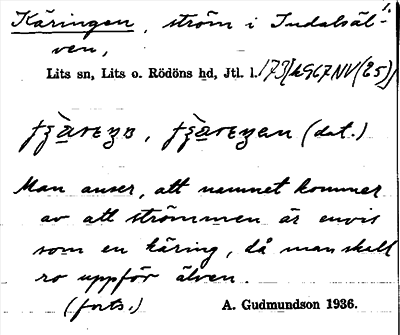 Käringen, ström i Indalsäl-
1.
ven,
Lits sn, Lits o. Rödöns hd, Jtl. l.
Man anser, att namnet kommer
av att strömmen är envis
som en käring, då man skall
ro uppför älven.
(forts.) A. Gudmundson 1936.